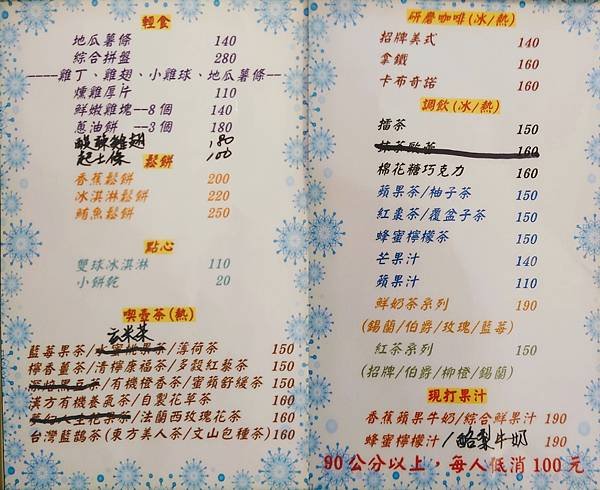 輕食
地瓜薯條 140
綜合拼盤 280
----雞丁、雞翅、小雞球、地瓜薯條--
燻雞厚片 110
鮮嫩雞塊--8個 140
蔥油餅 --3個 180
酸辣雞翅 180
起士條 100
鬆餅
香蕉鬆餅 200
冰淇淋鬆餅 220
鮪魚鬆餅 250
點心
雙球冰淇淋 110
小餅乾 20
喫壺茶(熱)
玄米茶
藍莓果茶/水蜜桃果茶/薄荷茶 150
檸香薑茶/清檸康福茶/多穀紅藜茶 150
深焙黑豆茶/有機橙香茶/蜜蘋舒緩茶 150
漢方有機養氣茶/自製花草茶 160
夢幻人生花果茶/法蘭西玫瑰花茶 160
台灣藍鵲茶(東方美人茶/文山包種茶)160
研磨咖啡(冰/熱)
招牌美式 140
拿鐵 160
卡布奇諾 160
調飲(冰/熱)
擂茶 150
抹茶歐蕾 160
棉花糖巧克力 160
蘋果茶/柚子茶 150
紅棗茶/覆盆子茶 150
蜂蜜檸檬茶 150
芒果汁 140
蘋果汁 110
鮮奶茶系列 190
(錫蘭/伯爵/玫瑰/藍莓)
紅茶系列 150
(招牌/伯爵/柳橙/錫蘭)
現打果汁
香蕉蘋果牛奶/綜合鮮果汁 190
蜂蜜檸檬汁/酪梨牛奶 190
90公分以上，每人低消100元